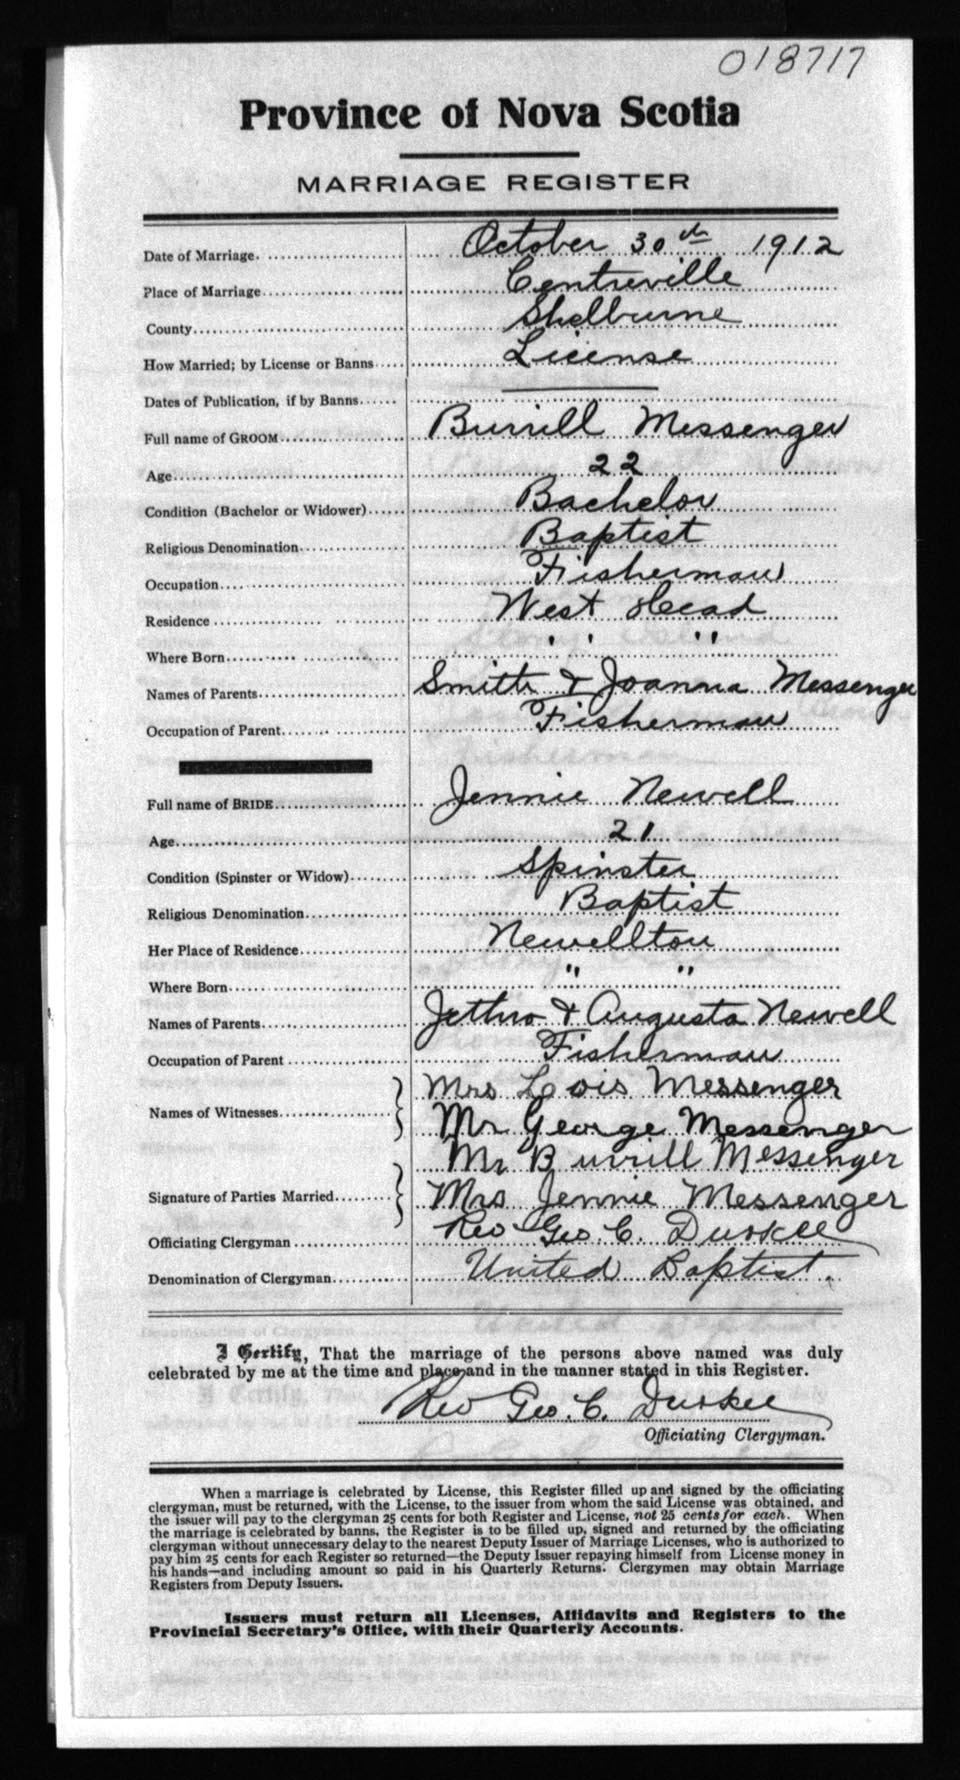 018717
Province of Nova Scotia
MARRIAGE REGISTER
Date of Marriage. October 30th 1912
Place of Marriage Centreville
County Shelburne
How Married; by License or Banns License
Dates of Publication, if by Banns
Full name of GROOM Burrill Messenger
Age 22
Condition (Bachelor or Widower) Bachelor
Religious Denomination Baptist
Occupation Fisherman
Residence West Head
Where Born " "
Names of Parents Smith & Joanna Messenger
Occupation of Parent Fisherman
Full name of BRIDE Jennie Newell
Age 21
Condition (Spinster or Widow) Spinster
Religious Denomination Baptist
Her Place of Residence Newellton
Where Born " "
Names of Parents Jethro & Augusta Newell
Occupation of Parent Fisherman
Names of Witnesses Mrs Lois Messenger
Mr George Messenger
Signature of Parties Married Mr Burrill Messenger
Mrs Jennie Messenger
Officiating Clergyman Rev Geo. C. Durkee
Denomination of Clergyman United Baptist.
I Certify, That the marriage of the persons above named was duly
celebrated by me at the time and place and in the manner stated in this Register.
Rev Geo. C. Durkee
Officiating Clergyman.
When a marriage is celebrated by License, this Register filled up and signed by the officiating
clergyman, must be returned, with the License, to the issuer from whom the said License was obtained, and
the issuer will pay to the clergyman 25 cents for both Register and License, not 25 cents for each. When
the marriage is celebrated by banns, the Register is to be filled up, signed and returned by the officiating
clergyman without unnecessary delay to the nearest Deputy Issuer of Marriage Licenses, who is authorized to
pay him 25 cents for each Register so returned—the Deputy Issuer repaying himself from License money in
his hands—and including amount so paid in his Quarterly Returns. Clergymen may obtain Marriage
Registers from Deputy Issuers.
Issuers must return all Licenses, Affidavits and Registers to the
Provincial Secretary's Office, with their Quarterly Accounts.